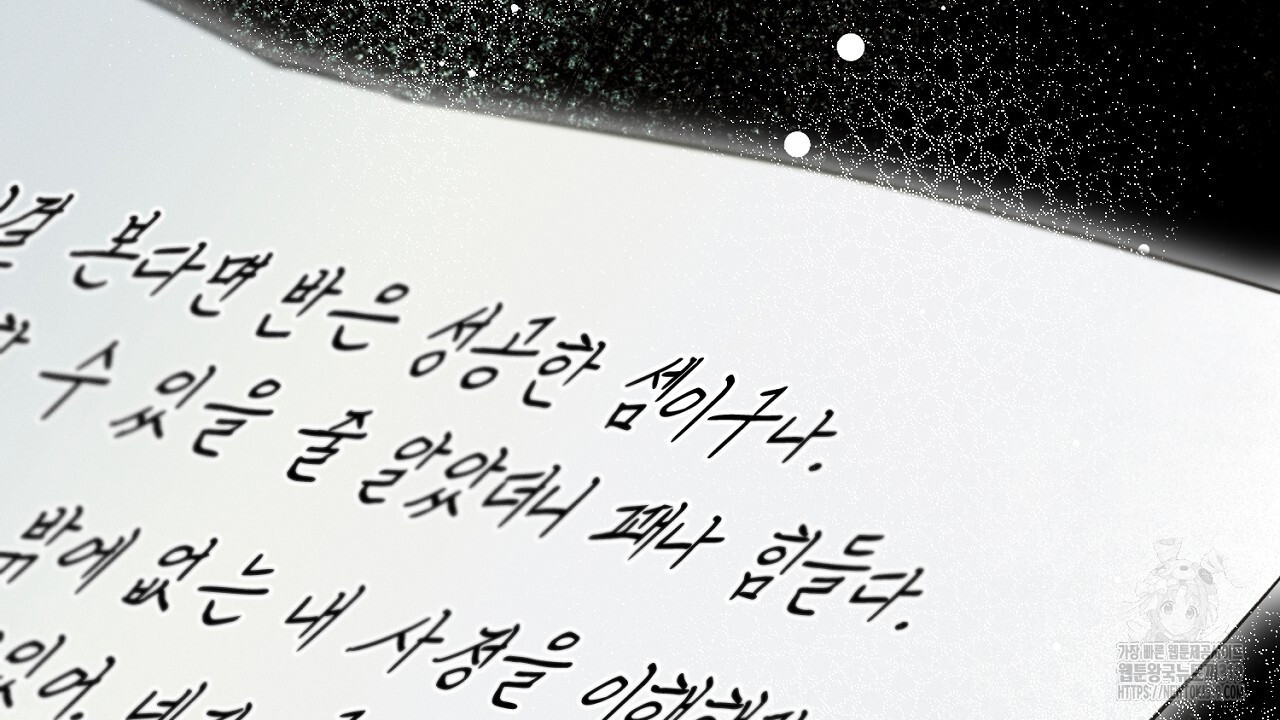 걸 본다면 반은 성공한 셈이구나.
수 있을 줄 알았더니 꽤나 힘들다.
밖에 없는 내 사정을
있어.
가장 빠른 웹툰제공사이트
웹툰왕국뉴토끼